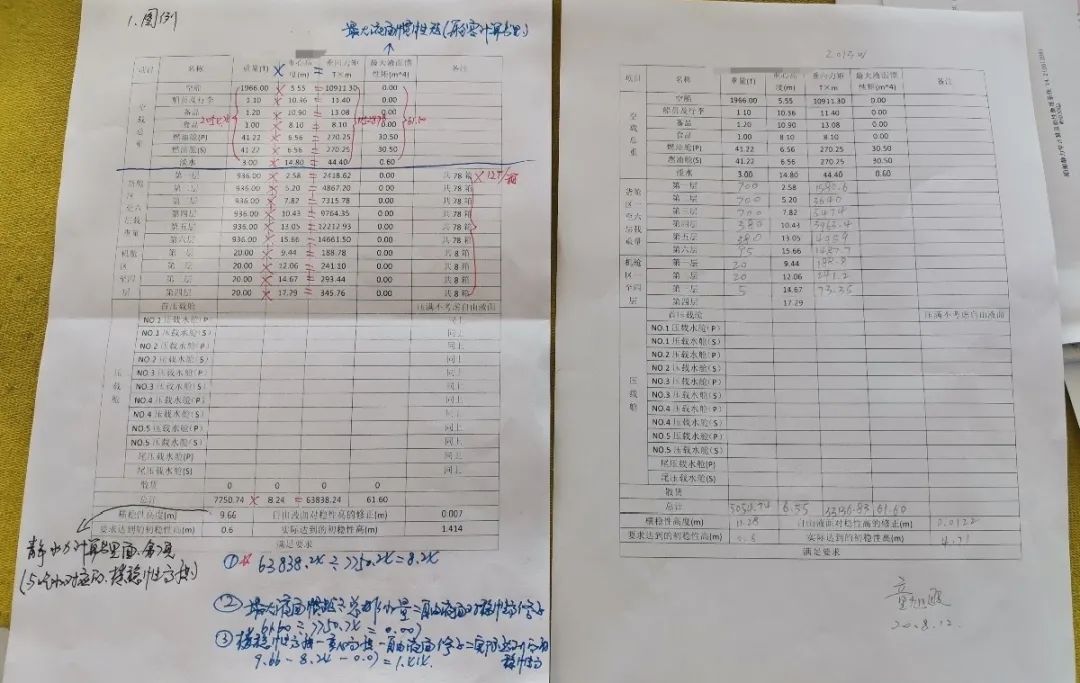 1.图例
项目 名称 重量(t) × 重心高度(m) = 垂向力矩 T×m 最大液面惯性矩(m^4) 备注
空载总重
空船 1966.00 5.55 10911.30 0.00
船员及行李 1.10 10.36 11.40 0.00
备品 1.20 10.90 13.08 0.00
食品 1.00 8.10 8.10 0.00
燃油舱(P) 41.22 6.56 270.25 30.50
燃油舱(S) 41.22 6.56 270.25 30.50
淡水 3.00 14.80 44.40 0.60
货舱区一至六层载重量
第一层 936.00 × 2.58 = 2418.62 0.00 共78箱
第二层 936.00 × 5.20 = 4867.20 0.00 共78箱
第三层 936.00 × 7.82 = 7315.78 0.00 共78箱
第四层 936.00 × 10.43 = 9764.35 0.00 共78箱
第五层 936.00 × 13.05 = 12212.93 0.00 共78箱
第六层 936.00 × 15.66 = 14661.50 0.00 共78箱
机舱区一至四层
第一层 20.00 × 9.44 = 188.78 0.00 共8箱
第二层 20.00 × 12.06 = 241.10 0.00 共8箱
第三层 20.00 × 14.67 = 293.44 0.00 共8箱
第四层 20.00 × 17.29 = 345.76 0.00 共8箱
压载舱
首压载舱 压满不考虑自由液面
NO.1压载水舱(P) 同上
NO.1压载水舱(S) 同上
NO.2压载水舱(P) 同上
NO.2压载水舱(S) 同上
NO.3压载水舱(P) 同上
NO.3压载水舱(S) 同上
NO.4压载水舱(P) 同上
NO.4压载水舱(S) 同上
NO.5压载水舱(P) 同上
NO.5压载水舱(S) 同上
尾压载水舱(P) 同上
尾压载水舱(S) 同上
散货 0 0 0 0
总计 7750.74 × 8.24 = 63838.24 61.60
横稳性高度(m) 9.66 自由液面对稳性高的修正(m) 0.007
要求达到的初稳性高(m) 0.6 实际达到的初稳性高(m) 1.414
满足要求
① 63838.24÷7750.74=8.24
项目 名称 重量(t) 重心高度(m) 垂向力矩 T×m 最大液面惯性矩(m^4) 备注
空载总重
空船 1966.00 5.55 10911.30 0.00
船员及行李 1.10 10.36 11.40 0.00
备品 1.20 10.90 13.08 0.00
食品 1.00 8.10 8.10 0.00
燃油舱(P) 41.22 6.56 270.25 30.50
燃油舱(S) 41.22 6.56 270.25 30.50
淡水 3.00 14.80 44.40 0.60
货舱区一至六层载重量
第一层 700 2.58
第二层 700 5.20 3640
第三层 700 7.82 5474
第四层 380 10.43 3963.4
第五层 380 13.05 4959
第六层 95 15.66 1487.7
机舱区一至四层
第一层 20 9.44 188.8
第二层 20 12.06 241.2
第三层 5 14.67 73.35
第四层 17.29
压载舱
首压载舱 压满不考虑自由液面
NO.1压载水舱(P)
NO.1压载水舱(S)
NO.2压载水舱(P)
NO.2压载水舱(S)
NO.3压载水舱(P)
NO.3压载水舱(S)
NO.4压载水舱(P)
NO.4压载水舱(S)
NO.5压载水舱(P)
NO.5压载水舱(S)
尾压载水舱(P)
尾压载水舱(S)
散货
总计 5054.74 6.55 61.60
横稳性高度(m) 11.28 自由液面对稳性高的修正(m) 0.0122
要求达到的初稳性高(m) 0.6 实际达到的初稳性高(m) 4.71
满足要求
20.8.12.